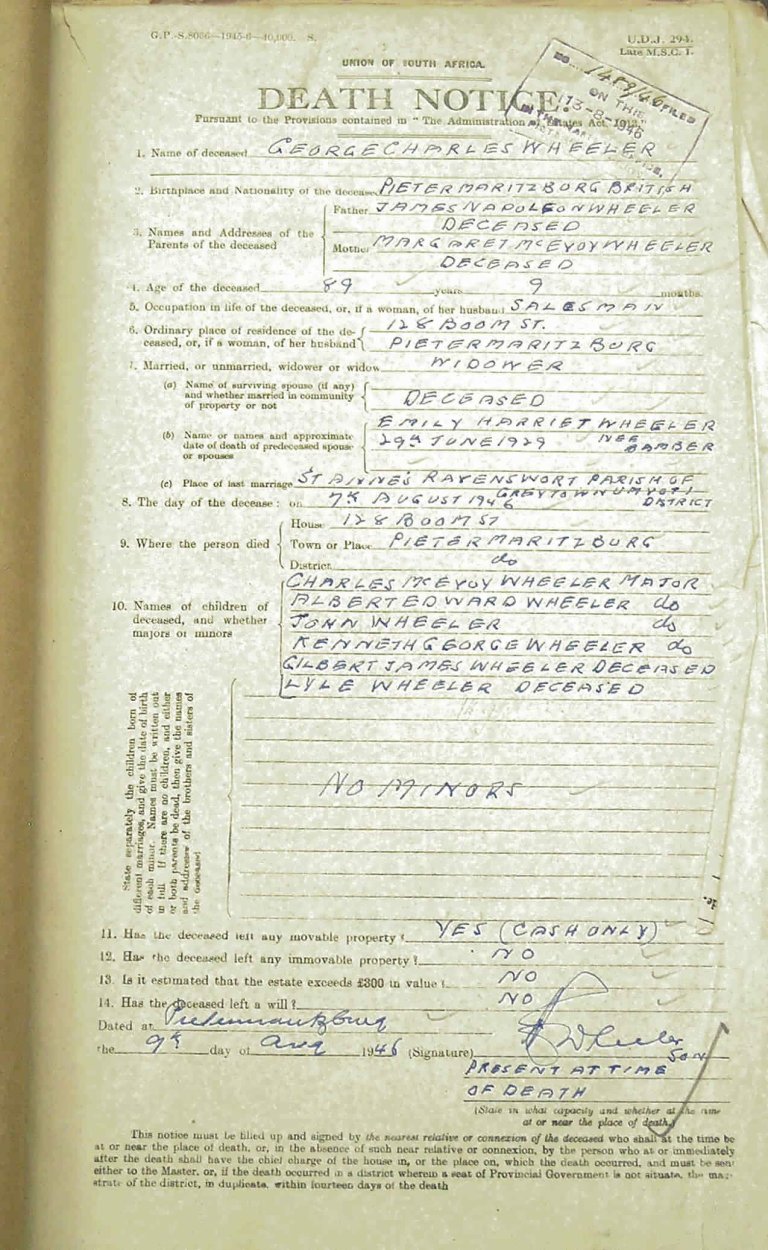 G.P.-S.8036—1945-6—40,000. S.
U.D.J. 294.
Late M.S.C. 1.
UNION OF SOUTH AFRICA.
NO. 1489/46 FILED
ON THIS
13-8-1946
IN THE
DEATH NOTICE.
Pursuant to the Provisions contained in "The Administration of Estates Act, 1913."
1. Name of deceased GEORGE CHARLES WHEELER
2. Birthplace and Nationality of the deceased PIETERMARITZBURG BRITISH
3. Names and Addresses of the Parents of the deceased
Father JAMES NAPOLEON WHEELER
DECEASED
Mother MARGARET McEVOY WHEELER
DECEASED
4. Age of the deceased 89 years 9 months.
5. Occupation in life of the deceased, or, if a woman, of her husband SALESMAN
6. Ordinary place of residence of the de- 128 BOOM ST.
ceased, or, if a woman, of her husband PIETERMARITZBURG
7. Married, or unmarried, widower or widow WIDOWER
(a) Name of surviving spouse (if any)
and whether married in community
of property or not DECEASED
EMILY HARRIET WHEELER
(b) Name or names and approximate
date of death of predeceased spouse
or spouses
29th JUNE 1929 NEE
BAMBER
(c) Place of last marriage ST ANNE'S RAVENSWORT PARISH OF
GREYTOWN UMVOTI
DISTRICT
8. The day of the decease: on 7th AUGUST 1946
9. Where the person died
House 128 BOOM ST
Town or Place PIETERMARITZBURG
District do
10. Names of children of
deceased, and whether
majors or minors
CHARLES McEVOY WHEELER MAJOR
ALBERT EDWARD WHEELER do
JOHN WHEELER do
KENNETH GEORGE WHEELER do
GILBERT JAMES WHEELER DECEASED
LYLE WHEELER DECEASED
State separately the children born of
different marriages, and give the date of birth
of each minor. Names must be written out
in full. If there are no children, and either
or both parents be dead, then give the names
and addresses of the brothers and sisters of
the deceased
NO MINORS
11. Has the deceased left any movable property? YES (CASH ONLY)
12. Has the deceased left any immovable property? NO
13. Is it estimated that the estate exceeds £300 in value? NO
14. Has the deceased left a will? NO
Dated at Pietermaritzburg
the 9th day of Aug 1946 (Signature) Wheeler
SON
PRESENT AT TIME
OF DEATH
(State in what capacity and whether at the time
at or near the place of death.)
This notice must be filled up and signed by the nearest relative or connexion of the deceased who shall at the time be
at or near the place of death, or, in the absence of such near relative or connexion, by the person who at or immediately
after the death shall have the chief charge of the house in, or the place on, which the death occurred, and must be sent
either to the Master, or, if the death occurred in a district wherein a seat of Provincial Government is not situate, the magi-
strate of the district, in duplicate, within fourteen days of the death